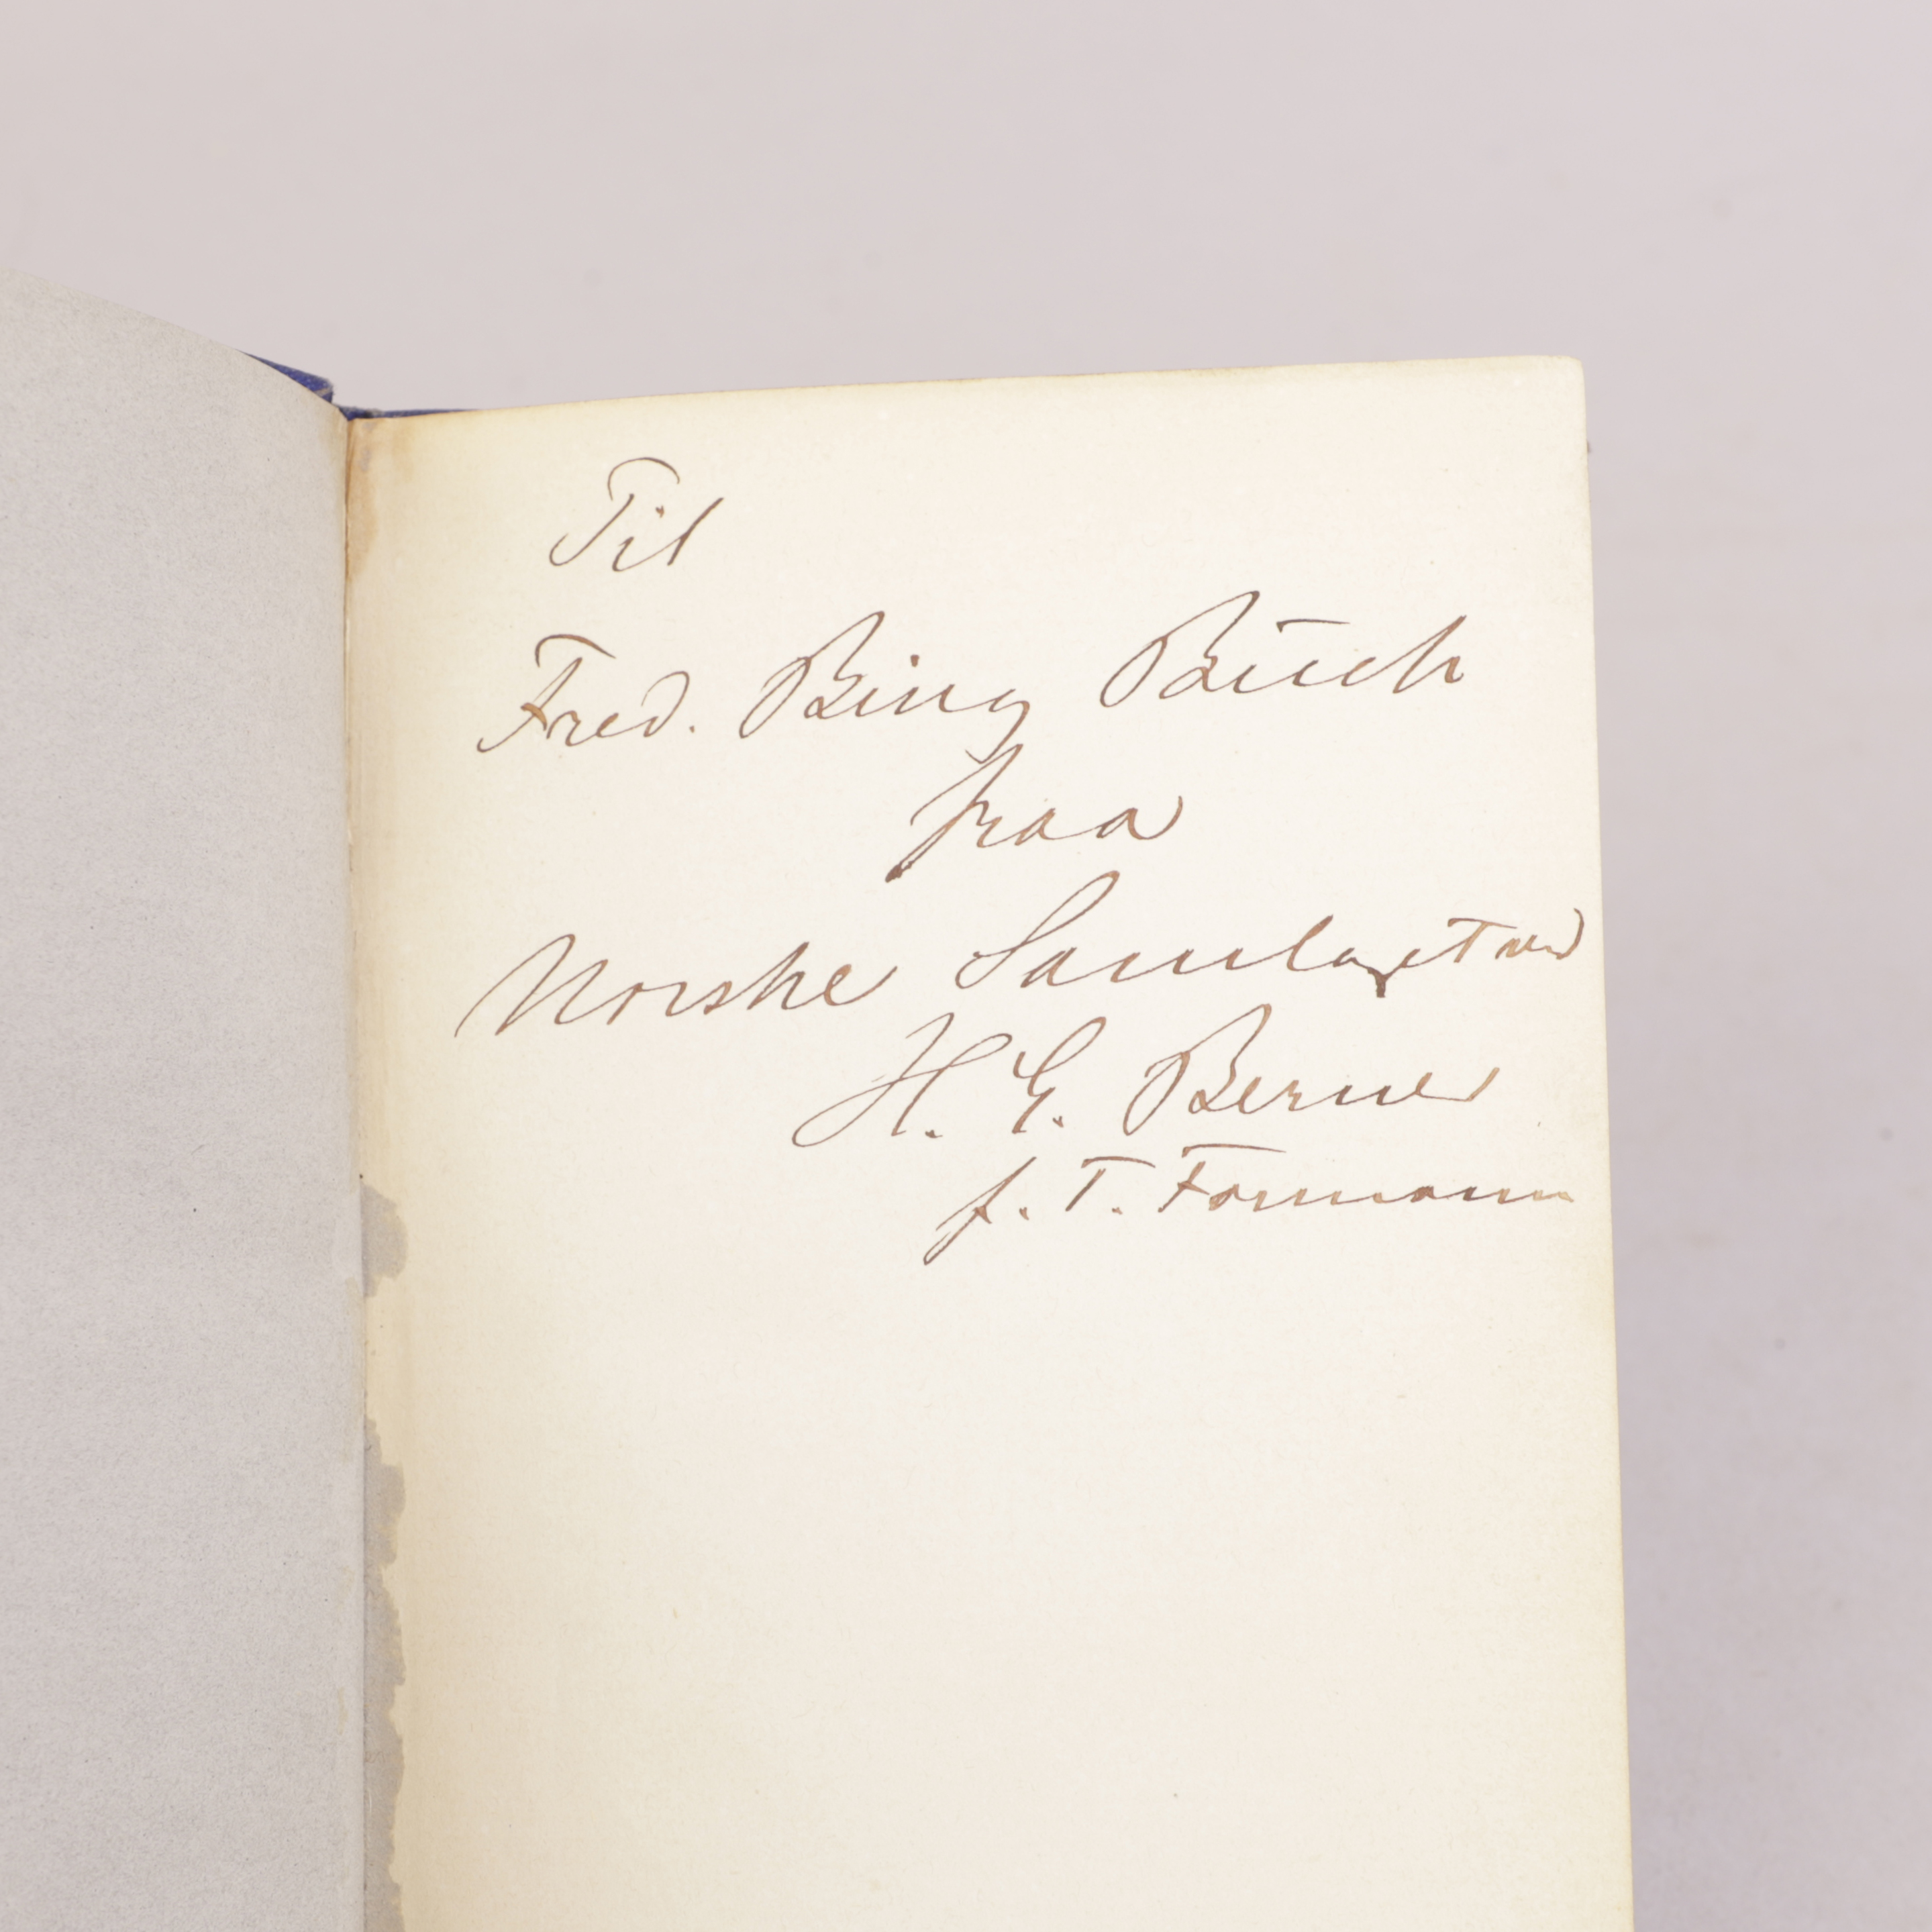 Til
Fred. Bing Buch
fraa
Norske Samlaget ved
H. E. Berner
f. T. Formann